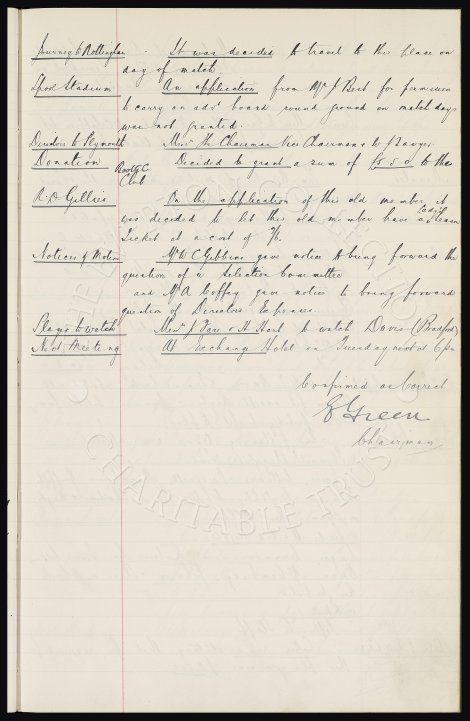 Journey to Nottingham . It was decided to travel to this place on
day of match
Spod Stadium An application from Mr J Best for permission
to carry an advt board round ground on match days
was not granted.
Directors to Plymouth Messrs The Chairman Vice Chairman & W Sawyer
Donation Decided to grant a sum of £5.5.0 to the
Bootle C
Club
R.D. Gillies On the application of this old member it
was decided to let this old member have a Ladies Season
Ticket at a cost of 7/6.
Notices of Motion Mr W C Gibbins gave notice to bring forward the
question of a Selection Committee
and Mr A Coffey gave notice to bring forward
question of Directors Expenses.
Player to watch Messrs J Fare & H Hart to watch Davis (Bradford)
Next Meeting At Exchange Hotel on Tuesday next at 6 pm
Confirmed as Correct
E Green
Chairman
THE EVERTON COLLECTION
CHARITABLE TRUST